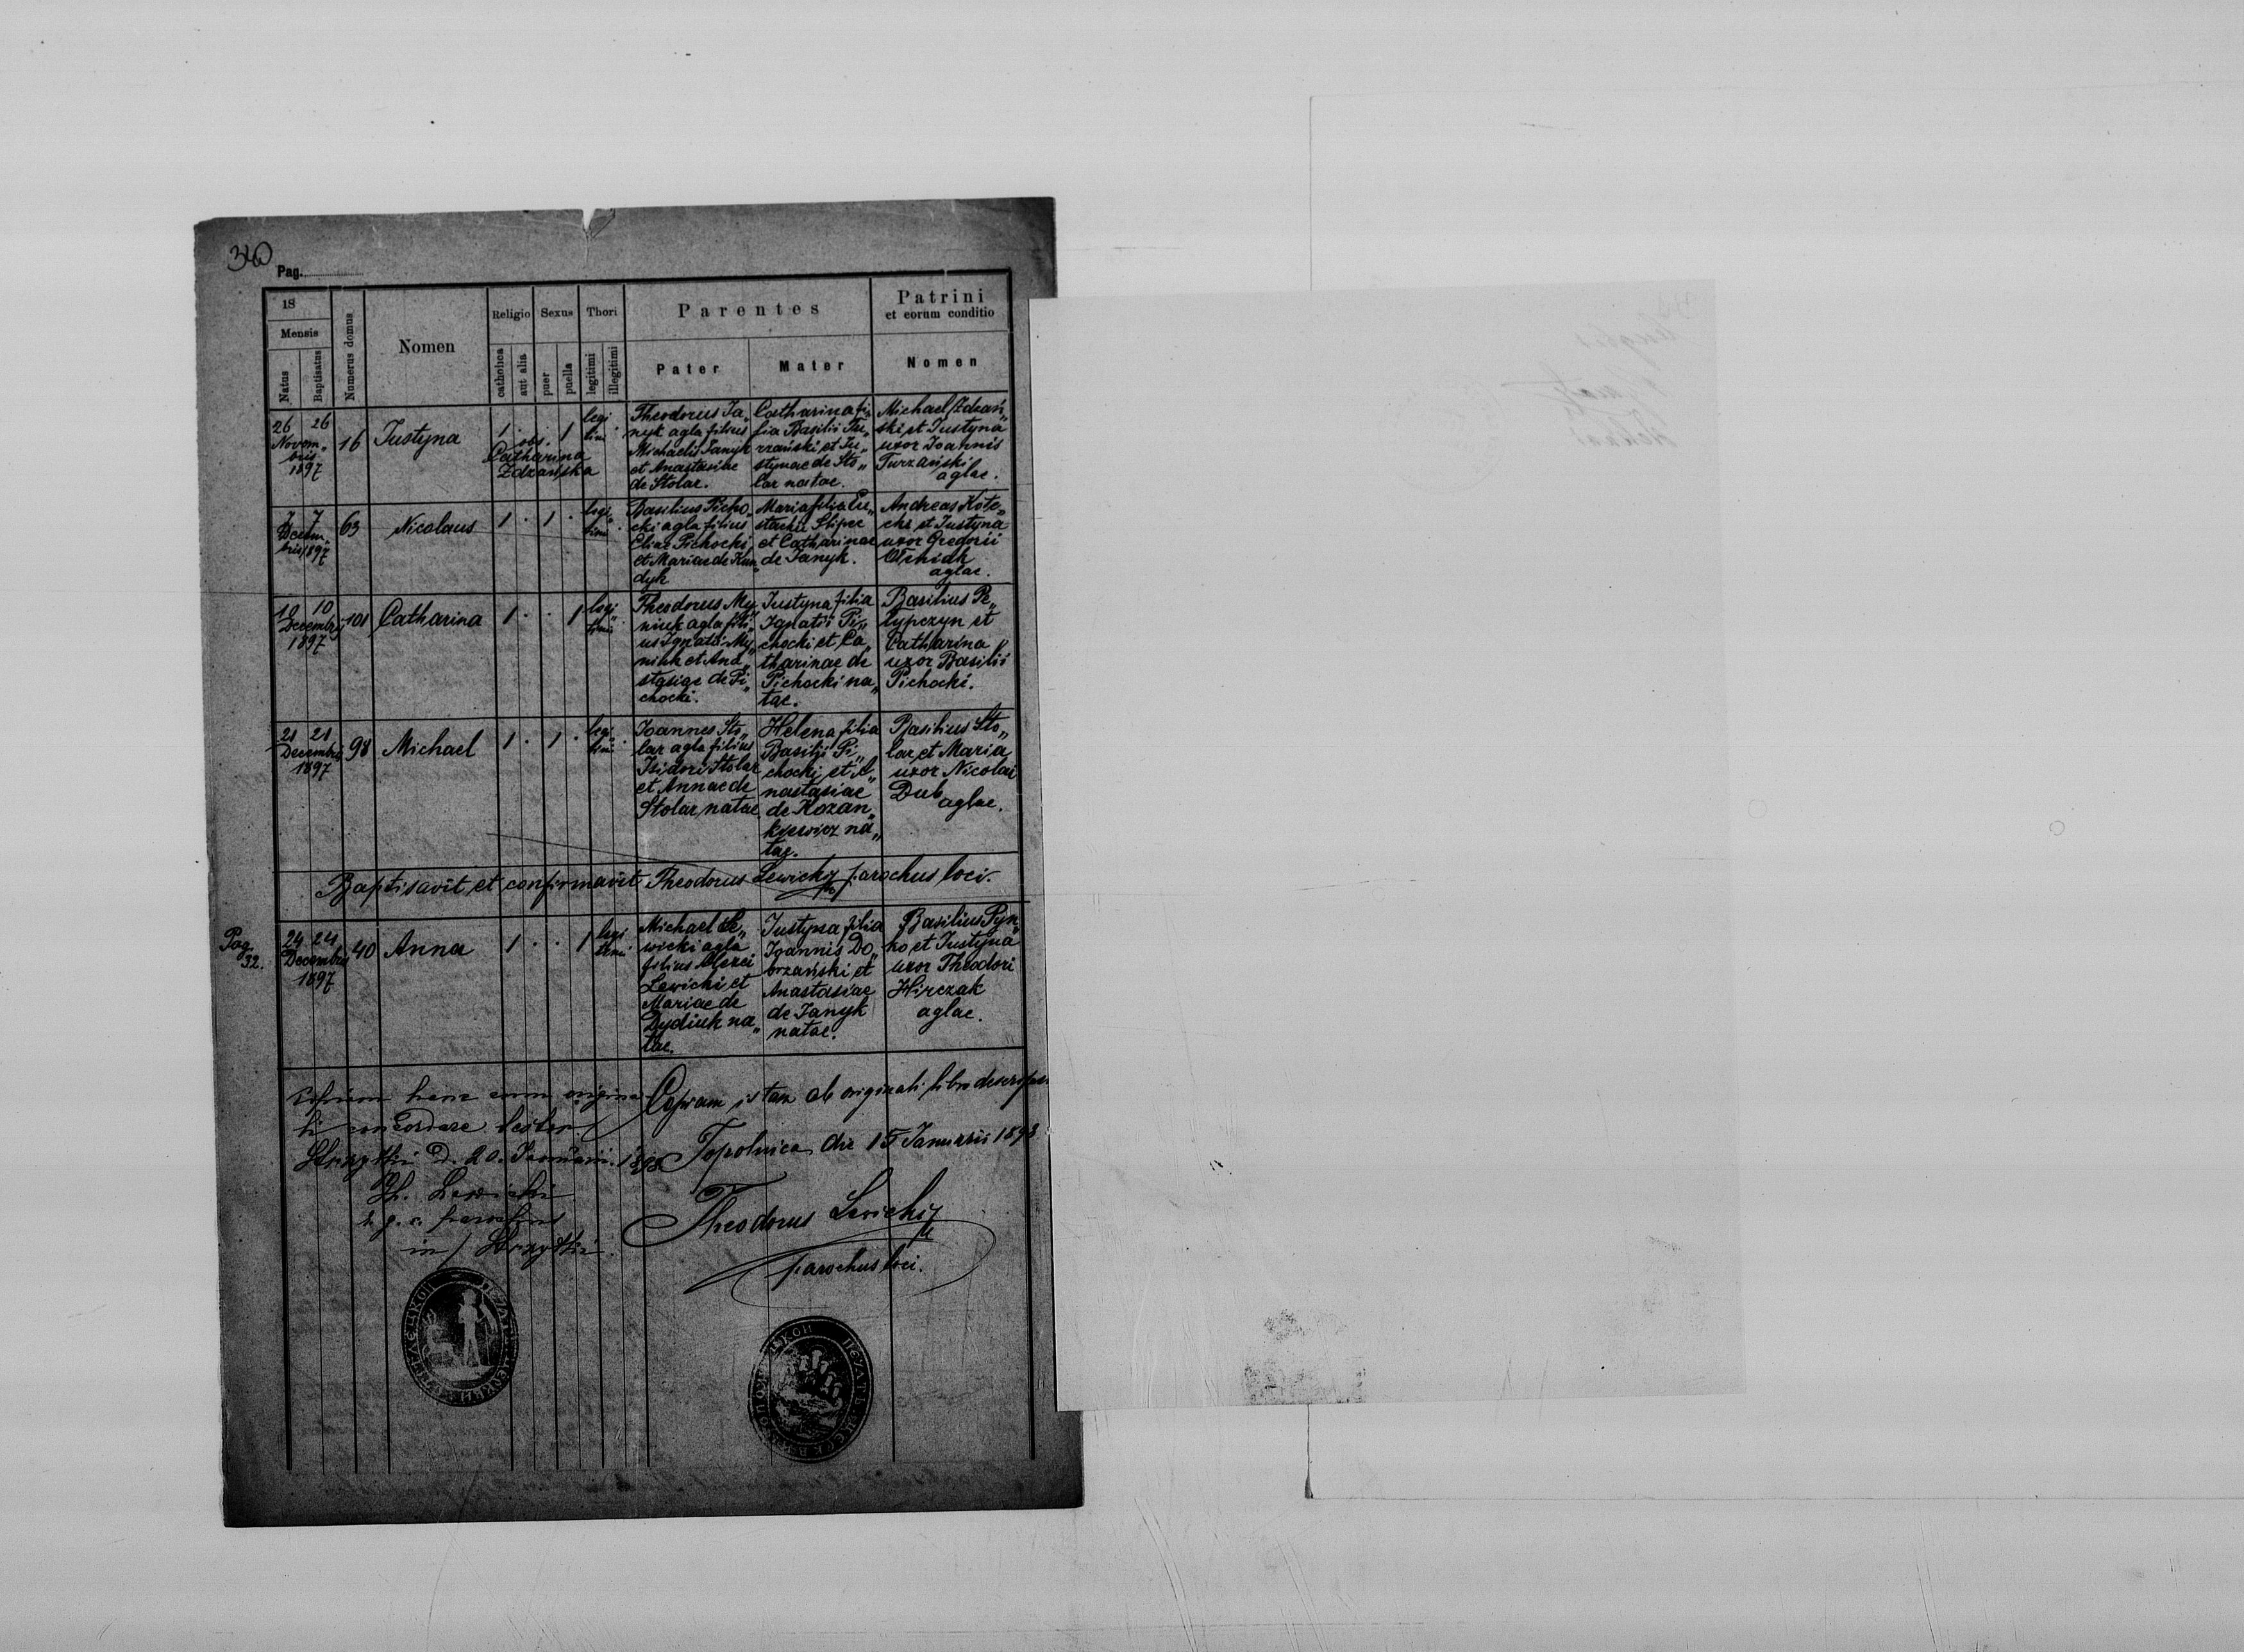 340
Pag.
18
Mensis
Natus
Baptisatus
Numerus domus
Nomen
Religio
catholica
aut alia
Sexus
puer
puella
Thori
legitimi
illegitimi
Parentes
Pater
Mater
Patrini
et eorum conditio
Nomen
26 26
Novem„
bris
1897
16
Justyna
1 . . 1
obs.
Catharina
Zdzańska
legi
timi
Theodorus Ja„
nyk agla filius
Michaelis Janyk
et Anastasiae
de Stolar.
Catharina fi„
lia Basilii Tu„
rzański et Ju„
stynae de Sto„
lar natae.
Michael Zdzań„
ski et Justyna
uxor Joannis
Turzański
aglae.
7 7
Decem„
bris 1897
63
Nicolaus
1 . 1 .
legi„
timi
Basilius Picho„
cki agla filius
Eliae Pichocki
et Mariae de Kun„
dyk
Maria filia Eu„
stachii Slipec
et Catharinae
de Janyk.
Andreas Kote„
cki et Justyna
uxor Gregorii
aglae.
10 10
Decembris
1897
101
Catharina
1 . . 1
legi„
timi
Theodorus My„
niuk agla fili„
us Ignatii My„
niuk et Ana„
stasiae de Pi„
chocki.
Justyna filia
Ignatii Pi„
chocki et Ca„
tharinae de
Pichocki na„
tae.
Basilius Pe„
lypczyn et
Catharina
uxor Basilii
Pichocki.
21 21
Decembris
1897
98
Michael
1 . 1 .
legi„
timi
Joannes Sto„
lar agla filius
Isidori Stolar
et Annae de
Stolar natae
Helena filia
Basilii Pi„
chocki et A„
nastasiae
de Kozan„
kiewicz na„
tae.
Basilius Sto„
lar et Maria
uxor Nicolai
Dub
aglae.
Baptisavit et confirmavit Theodorus Lewicky parochus loci.
Pag.
32.
24 24
Decembris
1897
40
Anna
1 . . 1
legi
timi
Michael Le„
wicki agla
filius Alexei
Lewicki et
Mariae de
Dydiuk na„
tae.
Justyna filia
Joannis Do„
brzański et
Anastasiae
de Janyk
natae.
Basilius Pyn„
ko et Justyna
uxor Theodori
Hirczak
aglae.
Copiam hanc cum origina
li concordare testor
Strzyłki d. 20. Januarii 1898
Th. Lewicki
r. g. c. parochus
in Strzyłki
Copiam istam ab originali libro descripsi
Topolnica die 15 Januarii 1898
Theodorus Lewicky
parochus loci.